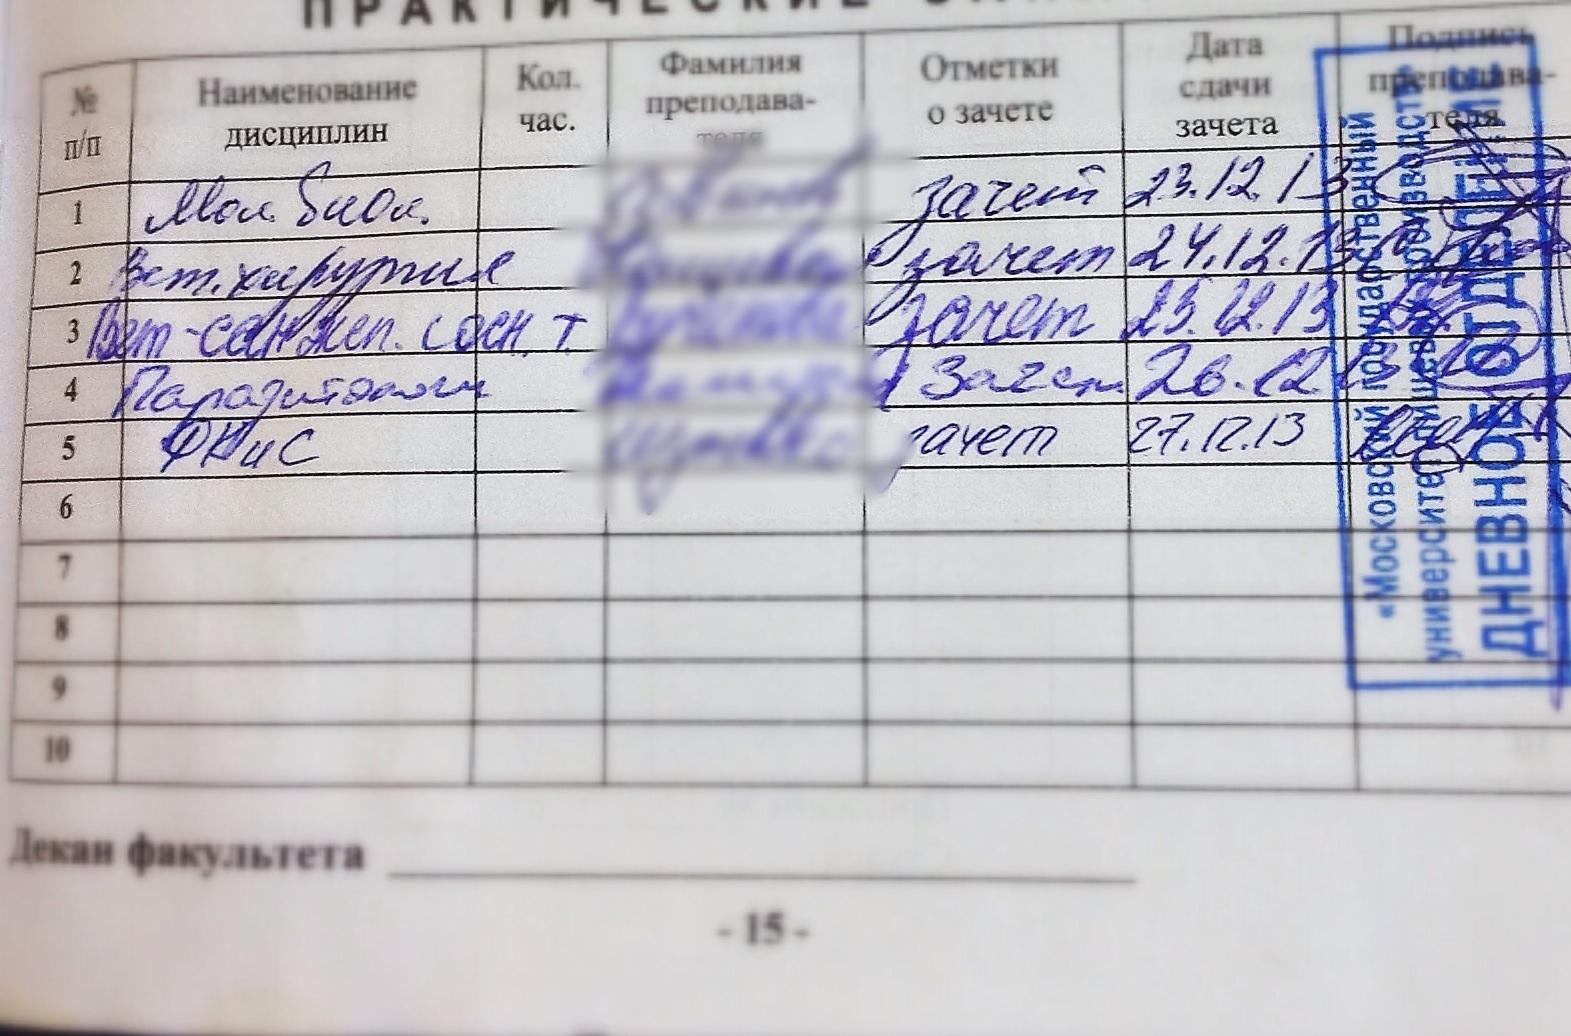 ПРАКТИЧЕСКИЕ
№ п/п Наименование дисциплин Кол. час. Фамилия преподава-теля Отметки о зачете Дата сдачи зачета Подпись преподава-теля
1 Мол. биол. зачет 23.12.13
2 Вет. хирургия зачет 24.12.13
3 Вет-сан эксп. с осн. т. зачет 25.12.13
4 Паразитологи Зачет 26.12.13
5 ФКиС зачет 27.12.13
6
7
8
9
10
«Московский государственный
университет пищевых производств»
ДНЕВНОЕ ОТДЕЛЕНИЕ
Декан факультета
- 15 -